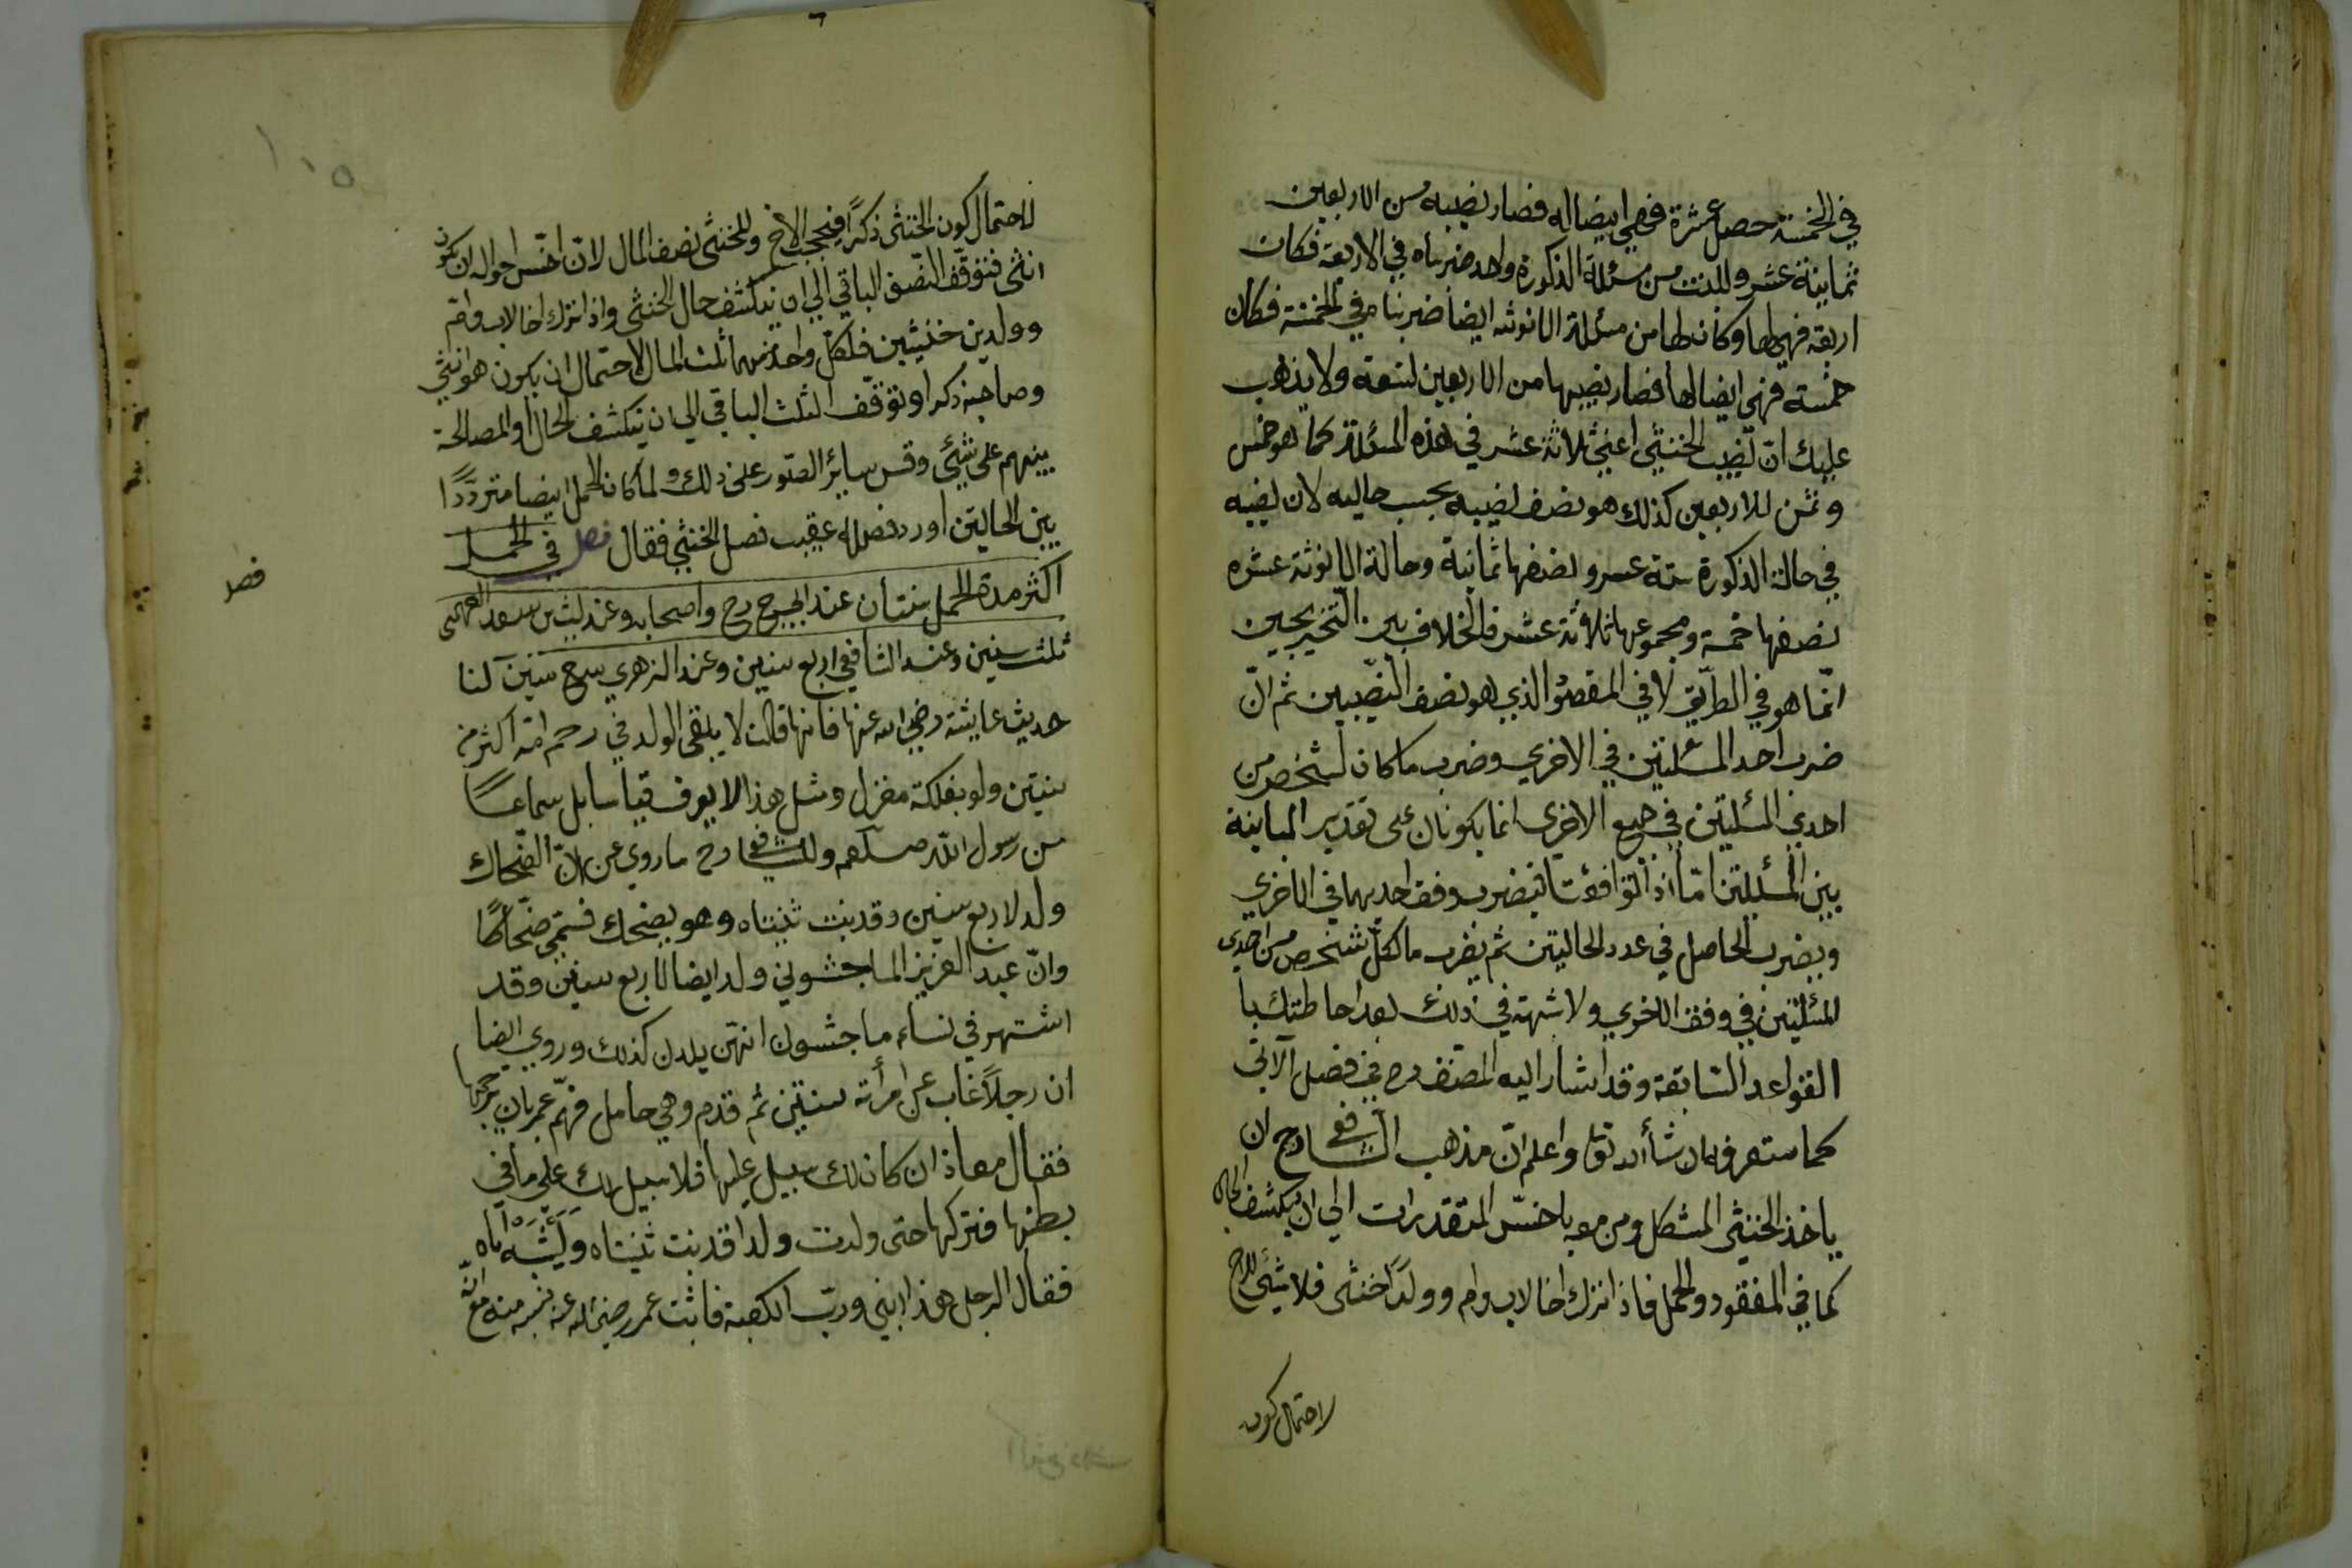 في الخمسة حصل عشرة فهي ايضا له فصار نصيبه من الاربعين
ثمانية عشر وللبنت من مسئلة الذكورة واحد ضربناه في الاربعة فكان
اربعة فهي لها وكان لها من مسئلة الانوثة ايضا ضربنا في الخمسة فكان
خمسة فهي ايضا لها فصار نصيبها من الاربعين تسعة ولا يذهب
عليك ان نصيب الخنثى اعني ثلاثة عشر في هذه المسئلة كما هو خمس
وثمن للاربعين كذلك هو نصف نصيبه بحسب حاليه لان نصيبه
في حالة الذكورة ستة عشر ونصفها ثمانية وحالة الانوثة عشرة
نصفها خمسة ومجموعها ثلاثة عشر فالخلاف بين التخريجين
انّما هو في الطريق لا في المقصود الذي هو نصف النّصيبين ثم انّ
ضرب احد المسئلتين في الاخري وضرب ما كان لشخص من
احدي المسئلتين في جميع الاخري انما يكونان على تقدير المباينة
بين المسئلتين امّا اذا توافقتا فيضرب وفق احديهما في الاخري
ويضرب الحاصل في عدد الحالتين ثم يضرب ما لكلّ شخص من احدي
المسئلتين في وفق الاخري ولا شبهة في ذلك بعد احاطتك با
القواعد السّابقة وقد اشار اليه المصنف رح في فصل الآتي
كما ستعرفه ان شأ الله تع واعلم انّ مذهب الشافعي رح ان
ياخذ الخنثى المشكل ومن معه باخسّ التقديرات الي ان ينكشف الحال
كما في المفقود والحمل فاذا ترك اخا لاب وام وولدًا خنثى فلا شئ للاخ
لاحتمال كون
لاحتمال كون الخنثى ذكرًا فيحجب الاخ وللخنثى نصف المال لانّ اخسّ احواله ان يكون
انثى فتوقّف النّصف الباقي الي ان ينكشف حال الخنثى واذا ترك اخا لاب وام
وولدين خنثيين فلكلّ واحد منهما ثلث المال لاحتمال ان يكون هو انثى
وصاحبه ذكرا وتوقّف الثلث الباقي الي ان ينكشف الحال أو المصالحة
بينهم على شيئ وقس سائر الصّور على ذلك ولما كان الحمل ايضا متردّدًا
بين الحالتين أورد فصله عقيب فصل الخنثى فقال فصل في الحمل
اكثر مدة الحمل سنتان عند ابي ح رح واصحابه وعند ليث بن سعد الفهمي
فصل
ثلث سنين وعند الشافعي اربع سنين وعند الزهري سبع سنين لنا
حديث عايشة رضي الله عنها فانها قالت لا يبقى الولد في رحم امّه اكثر من
سنتين ولو بفلكة مغزل ومثل هذا لا يعرف قياسا بل سماعًا
من رسول اللّه صلعم وللشافعي رح ما روي عن انّ الضّحاك
ولد لاربع سنين وقد نبت ثنيتاه وهو يضحك فسمّي ضحّاكًا
وانّ عبد العزيز الماجشوني ولد ايضا لاربع سنين وقد
اشتهر في نساء ماجشون انهّن يلدن كذلك وروي ايضا
ان رجلًا غاب عن امرأته سنتين ثم قدم وهي حامل فهمّ عمر بان يرجمها
فقال معاذ ان كان لك سبيل عليها فلا سبيل لك على ما في
بطنها فتركها حتى ولدت ولدا قد نبت ثنيتاه ويشبه اباه
فقال الرجل هذا ابني وربّ الكعبة فاثبت عمر رضي الله عنه نسبه منه مع انّه